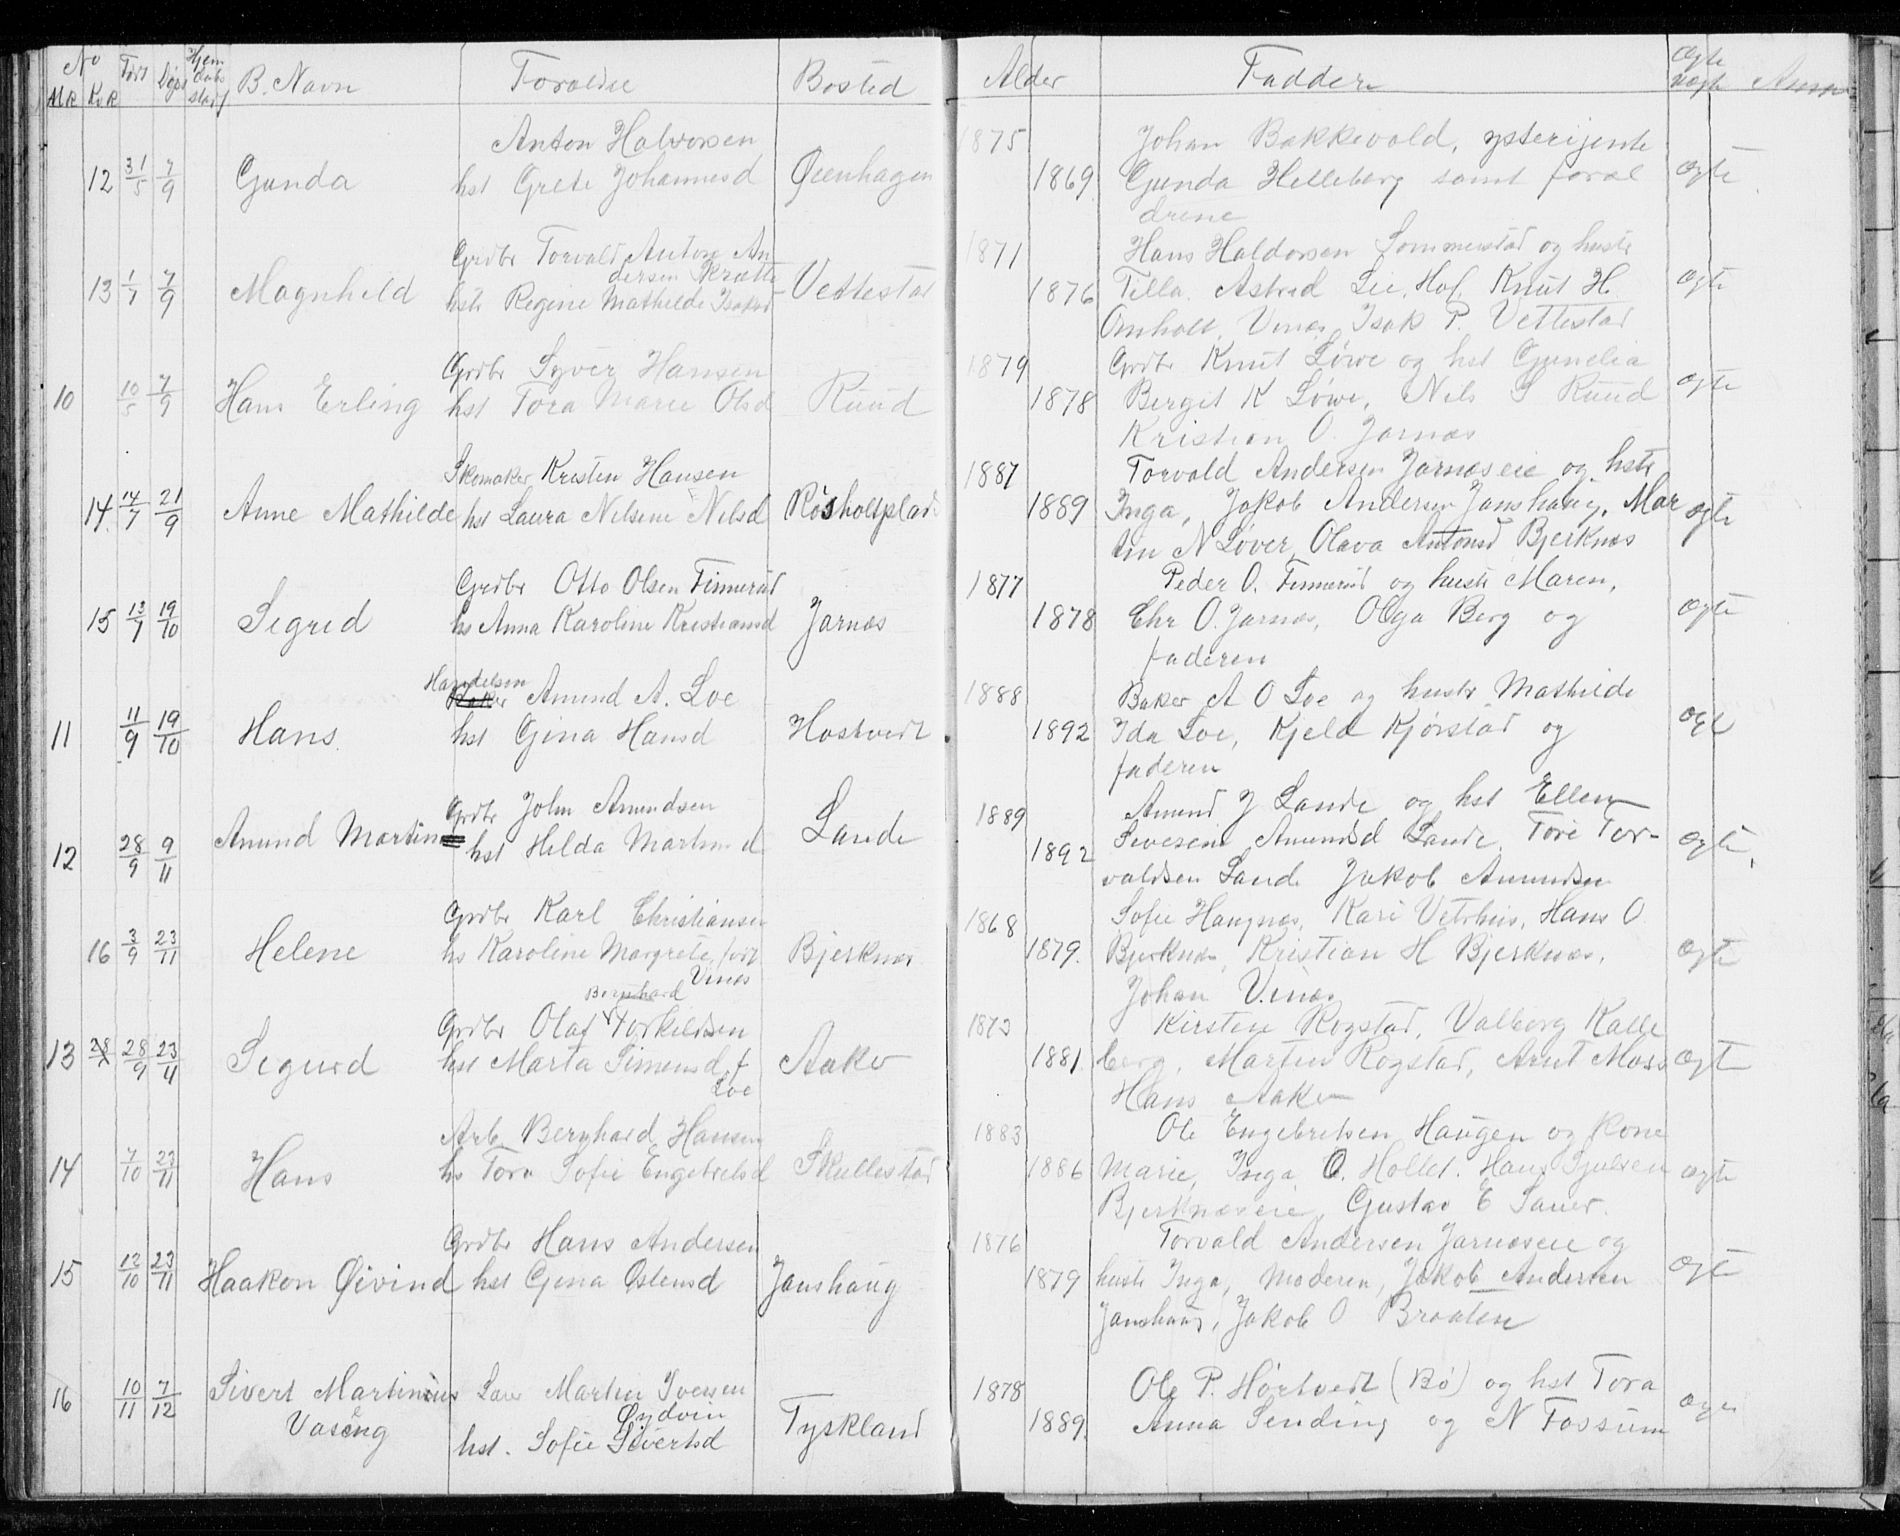 No Født Døpt Hjem døbt stadf B. Navn Forældre Bosted Alder Faddere Ægte uægte Anm
Mk Kvk
Anton Halvorsen 1875 Johan Bakkevold, ysterijente
12 31/5 7/9 Gunda hst Grete Johannesd Øienhagen 1869 Gunda Helleberg samt foræl ægte
drene
Grdbr Torvald Anton An 1871 Hans Haldorsen Sommerstad og hustr
dersen
13 1/7 7/9 Magnhild hstr Regine Mathilde Isaksd Vettestad 1876 Tilla. Astrid Lie, Hof, Knut H ægte
Omholt, Vinæs, Isak P. Vettestad
Grdbr Syver Hansen 1879 Grdbr Knut Løwe og hst Gunelia
10 10/5 7/9 Hans Erling hst Tora Marie Olsd Ruud 1878 Bergit K Løwe, Nils S Ruud ægte
Kristian O. Jarnæs
Skomaker Kresten Hansen 1887 Torvald Andersen Jarnæseie og hstr
14 14/7 21/9 Anne Mathilde hst Laura Nilsine Nilsd Røsholtplads 1889 Inga, Jakob Andersen Janshaug, Mar ægte
tin N Løver, Olava Antonsd Bjerknæs
Grdbr Otto Olsen Finnerud 1877 Peder O. Finnerud og hustr Maren,
15 13/7 19/10 Sigrid hs Anna Karoline Kristiansd Jarnæs 1878 Chr O. Jarnæs, Olga Berg og ægte
faderen
Handelsm
Baker Amund A. Loe 1888 Baker A O Loe og hustr Mathilde
11 11/9 19/10 Hans hst Gina Hansd Hostvedt 1892 Ida Loe, Kjeld Kjørstad og ægt
faderen
Grdbr John Amundsen 1889 Amund J Lande og hst Ellen
12 28/9 9/11 Amund Martin hst Hilda Martinsd Lande 1892 Severine Amundsd Lande, Tore Tor- ægte
valdsen Lande Jakob Amundsen
Grdbr Karl Christiansen 1868 Sofie Haugnæs, Kari Vetrhus, Hans O
16 3/9 23/11 Helene hs Karoline Margrete, født Bjerknæs 1879 Bjerknæs, Kristian H Bjerknæs, ægte
Vinæs Johan Vinæs
Bernhard
Grdbr Olaf Torkildsen 1873 Kirstine Rogstad, Valborg Kalle
13 28/9 23/11 Sigurd hst Marta Simensd f Aaker 1881 berg, Martin Rogstad, Arnt Moss ægt
Loe Hans Aaker
Arb. Bernhard Hansen 1883 Ole Engebretsen Haugen og kone
14 7/10 23/11 Hans hs Tora Sofie Engebretsd Skullestad 1886 Marie, Inga O. Hollet. Hans Gulsen ægte
Bjerknæseie, Gustav E Sauer.
Grdbr Hans Andersen 1876 Torvald Andersen Jarnæseie og
15 12/10 23/11 Haakon Øivind hst Gina Ostensd Janshaug 1879 hustr Inga, Moderen, Jakob Andersen ægte
Janshaug, Jakob O Braaten
16 10/11 7/12 Sivert Martinius Lær Martin Iversen 1878 Ole P. Hørtvedt (Bø) og hst Tora ægte
Vaseng Øydvin
hst. Sofie Sivertsd Tyskland 1889 Anna Sending og N Fossum